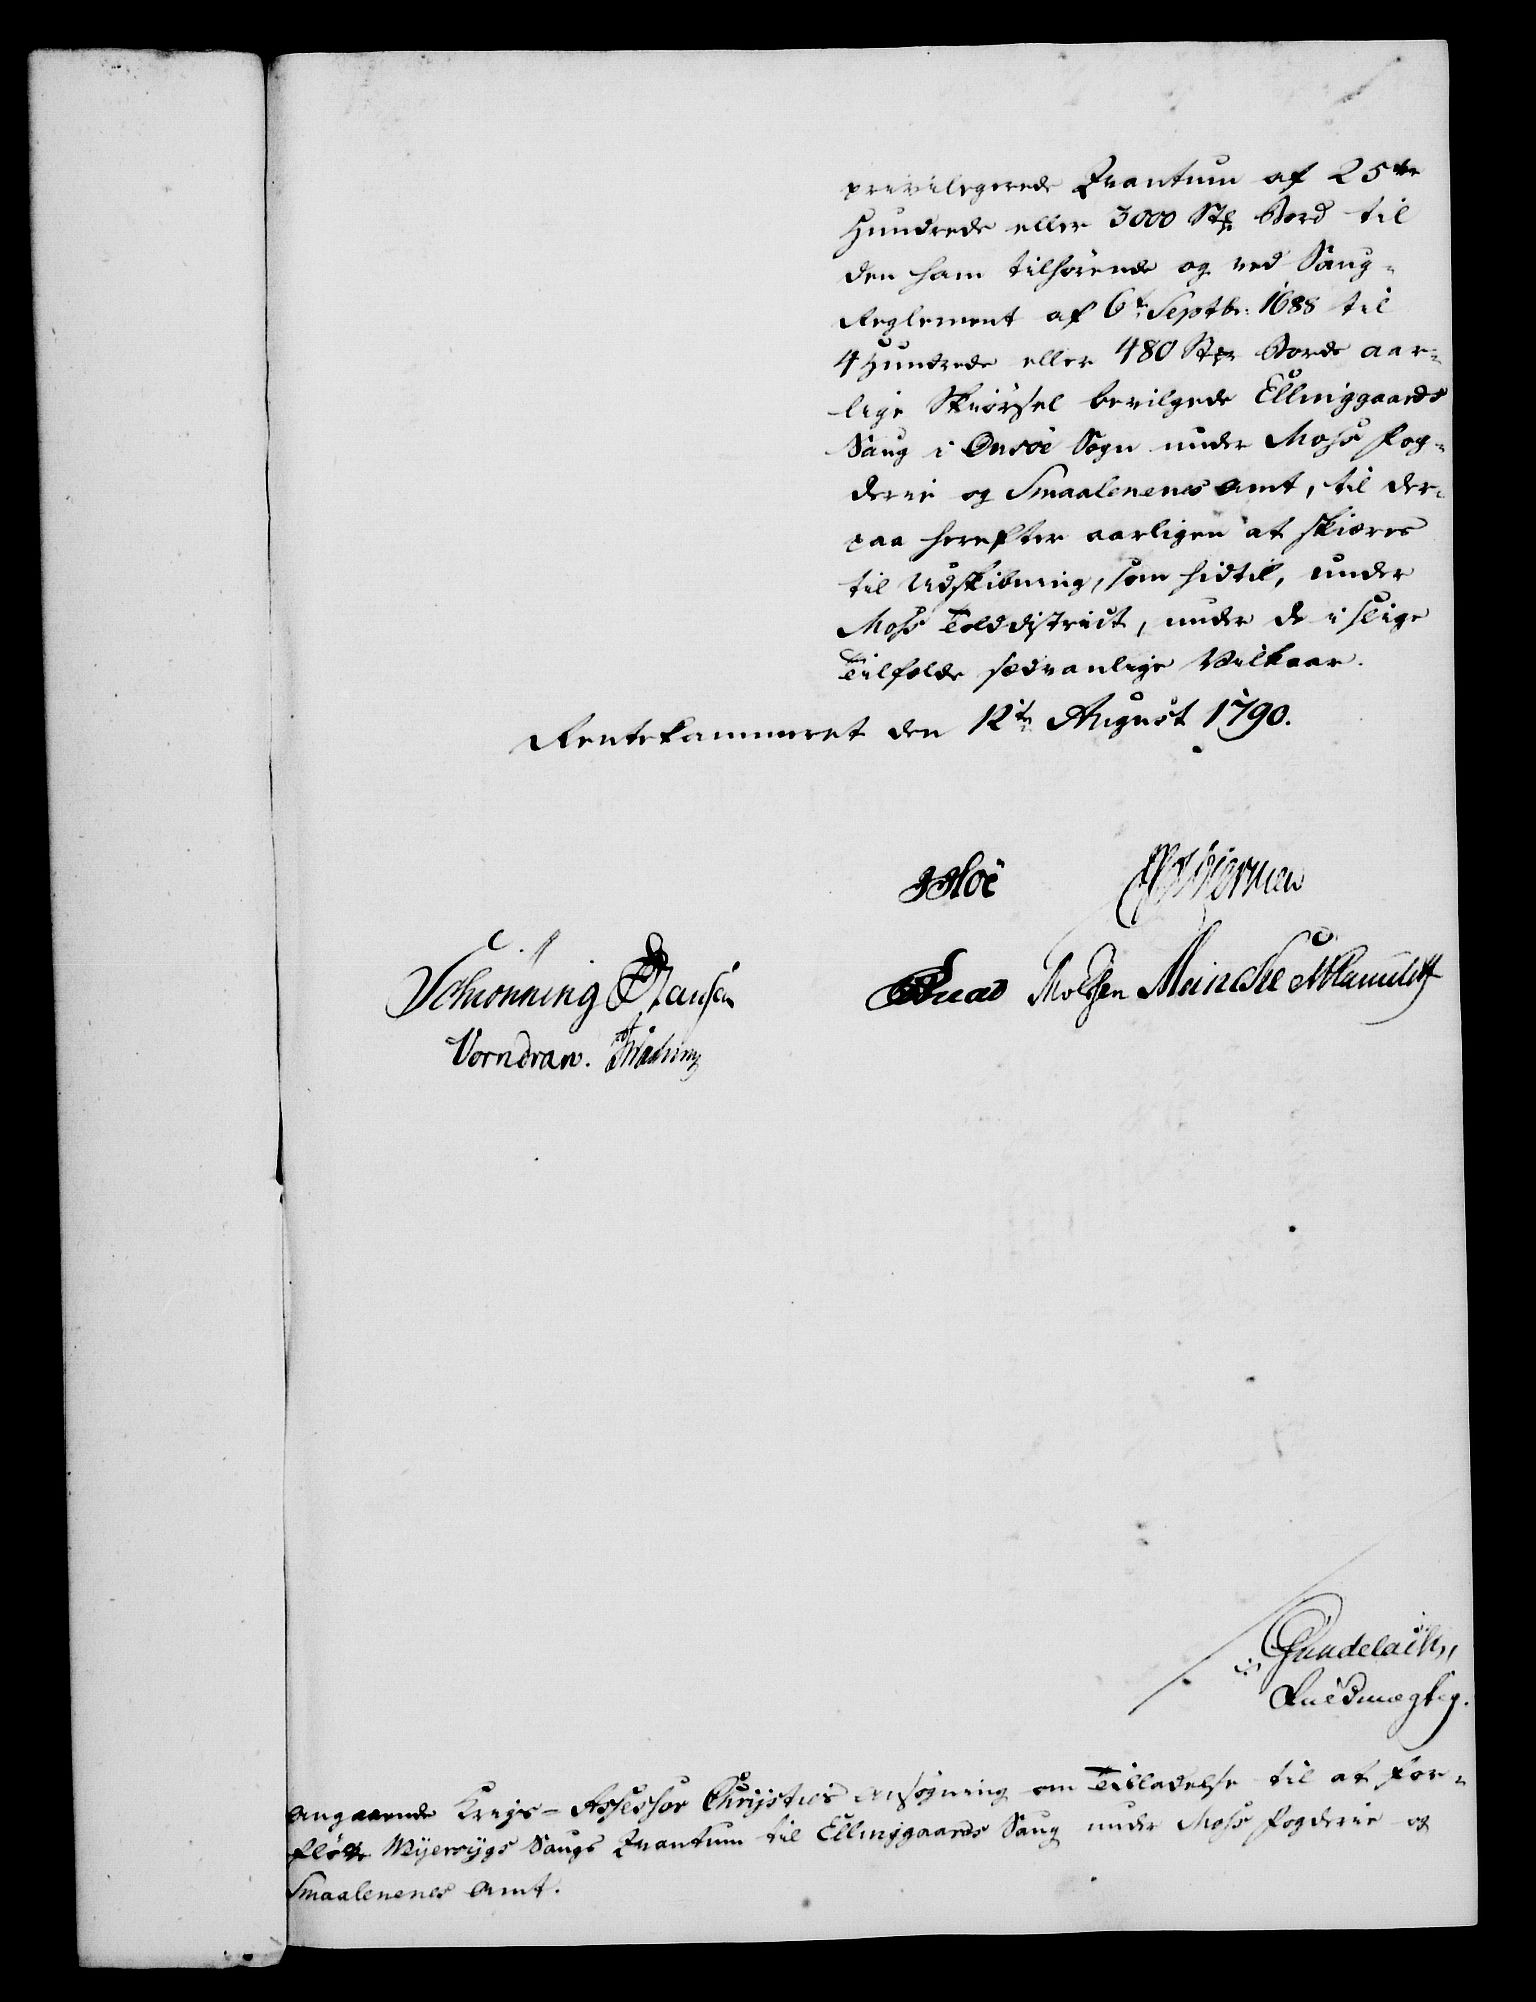 privilegerede Qvantum af 25 tve
Hundrede eller 3000 Stk Bord til
den ham tilhörende og ved Saug-
Reglement af 6t Septbr: 1688 til
4 Hundrede eller 480 Stkr Borde aar-
lige Skiörsel bevilgede Ellinggaards
Saug i Onsöe Sogn under Mohs Fog-
derie og Smaalenenes Amt, til der-
paa herefter aarligen at skiæres
til Udskibning, som hidtil, under
Mohs Tolddistrict, under de i slige
Tilfælde sædvanlige Vilkaar.
Rentekammeret den 12te August 1790.
Schiönning Hansen
Vorndran.
Knad Moldsen Meincke
Gundelach,
Fuldmægtig.
angaaende Krigs-Assessor Chrijsties Ansögning om Tilladelse til at for-
flötte Mijervigs Saugs Qvantum til Ellinggaards Saug under Mohs Fogderie og
Smaalenenes Amt.